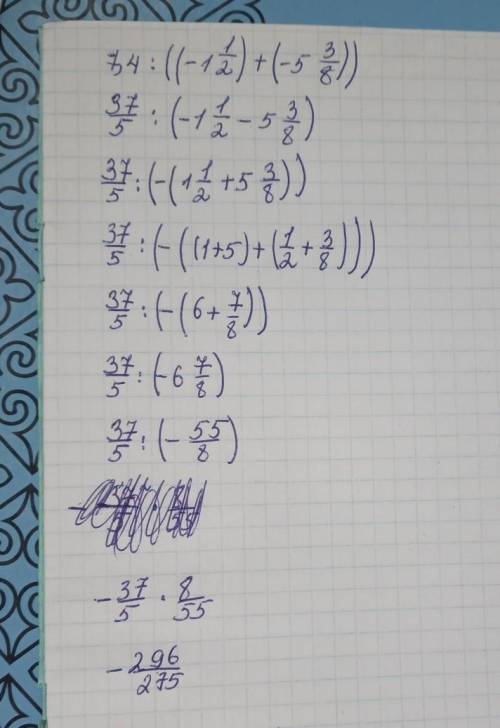 7,4 : ((-1 1/2) + (-5 3/8))
37/5 : (-1 1/2 - 5 3/8)
37/5 : (-(1 1/2 + 5 3/8))
37/5 : (-((1+5) + (1/2 + 3/8)))
37/5 : (-(6 + 7/8))
37/5 : (-6 7/8)
37/5 : (- 55/8)
- 37/5 · 8/55
- 296/275